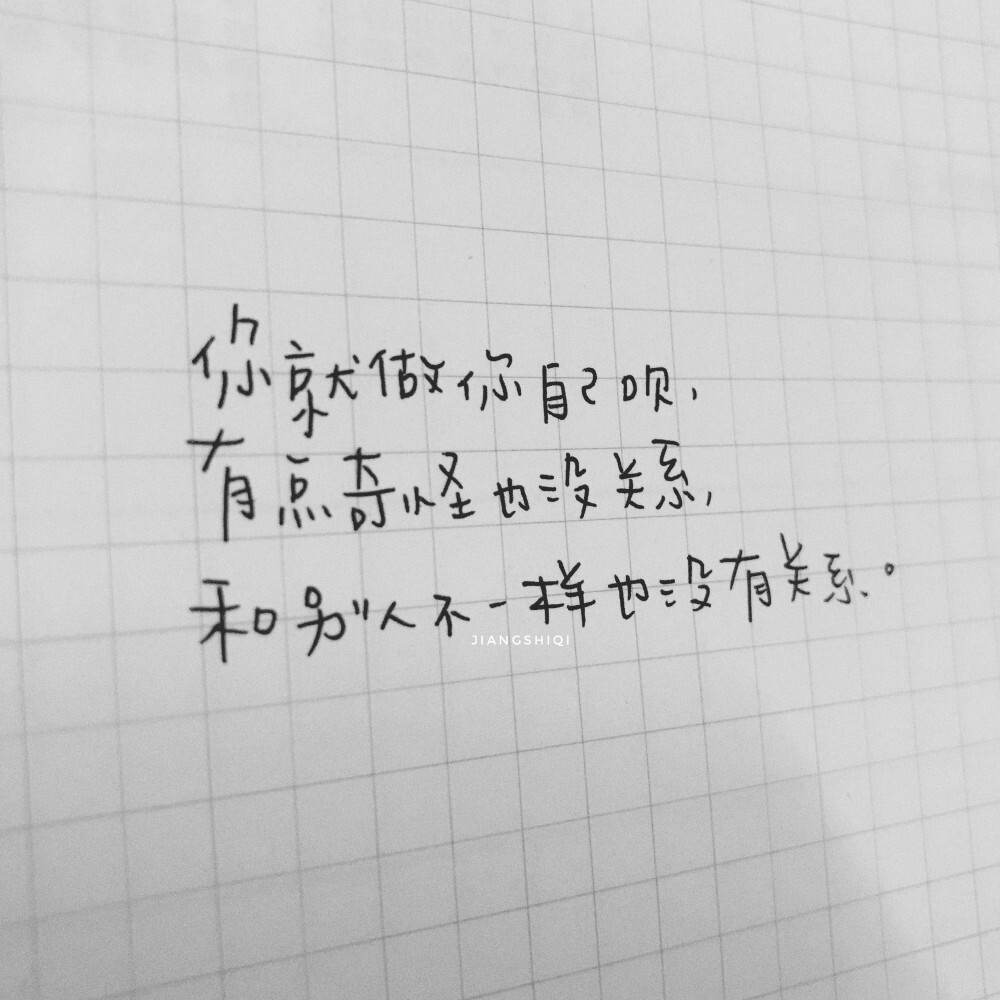 你就做你自己呗，
有点奇怪也没关系，
和别人不一样也没有关系。
JIANGSHIQI